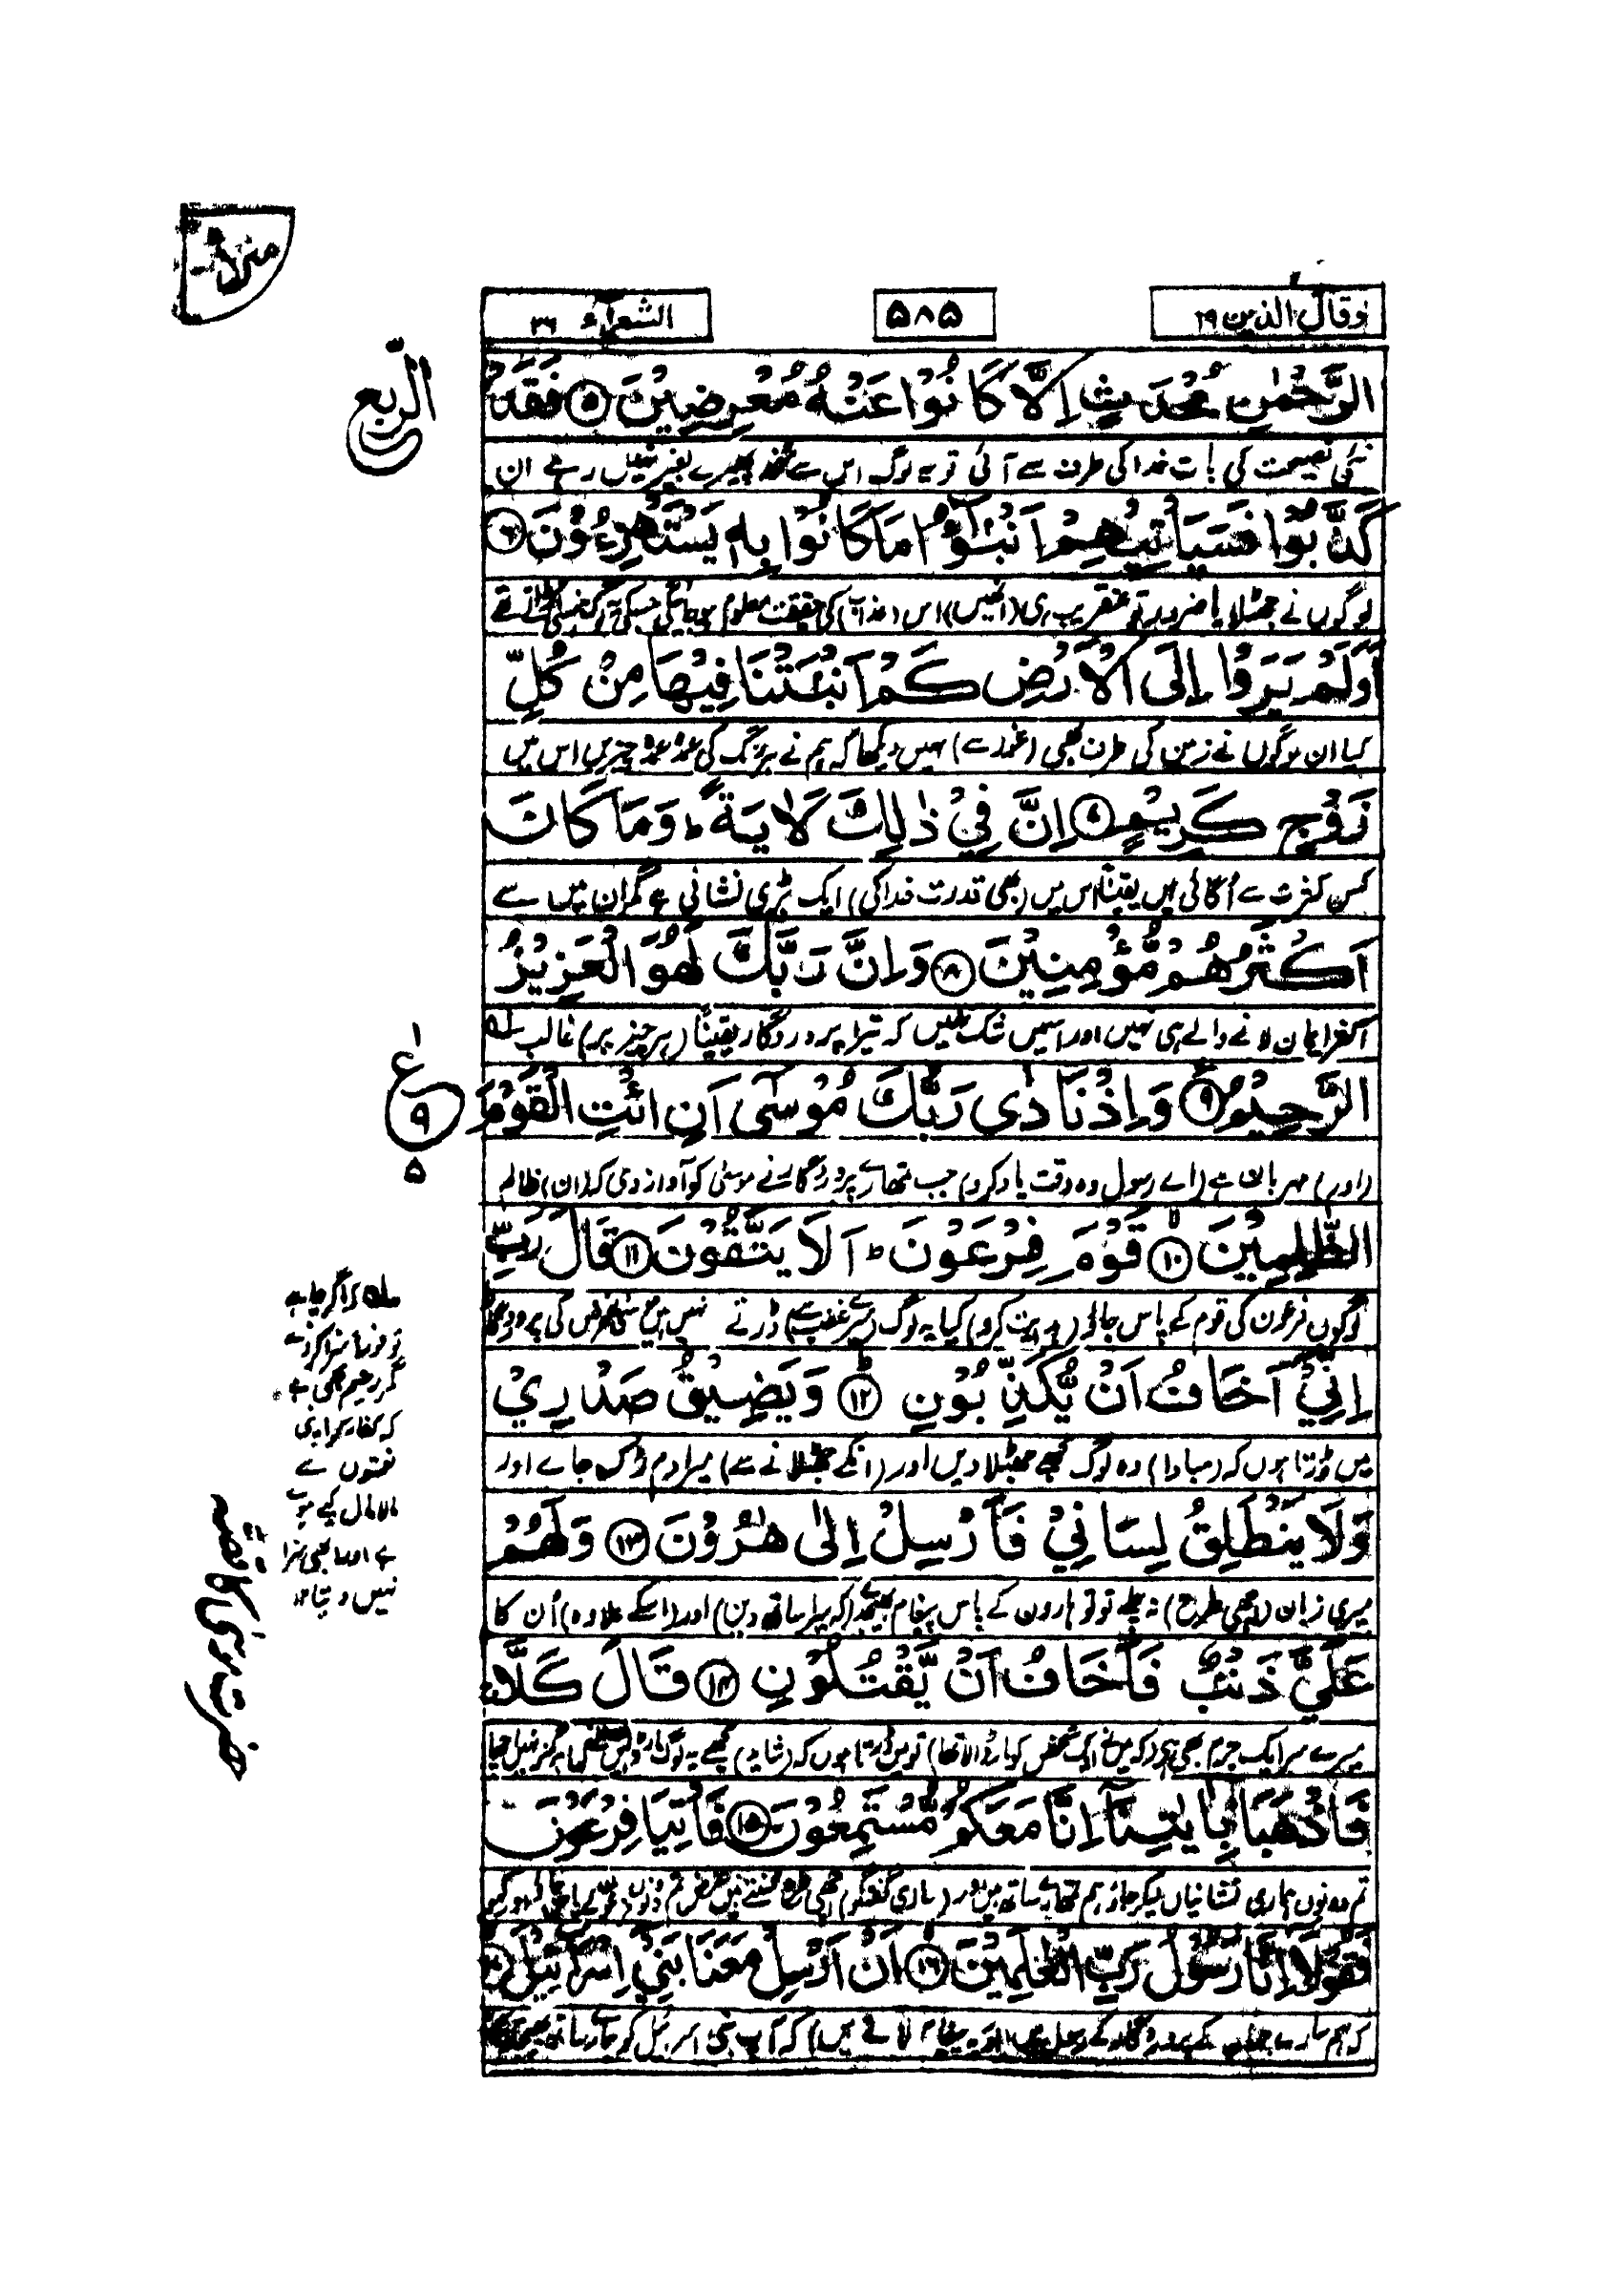 وقال الذین ۱۹
۵۸۵
الشعراء ۲۶
الربع
الرَّحْمٰنِ مُحْدَثٍ اِلَّا كَانُوْا عَنْهُ مُعْرِضِيْنَ ۵ فَقَدْ
نئی نصیحت کی بات خدا کی طرف سے آئی تو یہ لوگ اس سے منھ پھیرے بغیر نہیں رہے ان
كَذَّبُوْا فَسَيَأْتِيْهِمْ اَنْبٰٓؤُا مَا كَانُوْا بِهٖ يَسْتَهْزِءُوْنَ ۶
لوگوں نے جھٹلایا ضرور تو عنقریب ہی (انھیں) اس (عذاب) کی حقیقت معلوم ہو جائیگی جسکی یہ لوگ ہنسی اڑاتے تھے
اَوَلَمْ يَرَوْا اِلَى الْاَرْضِ كَمْ اَنْۢبَتْنَا فِيْهَا مِنْ كُلِّ
کیا ان لوگوں نے زمین کی طرف بھی (غور سے) نہیں دیکھا کہ ہم نے ہر رنگ کی عمدہ عمدہ چیزیں اس میں
زَوْجٍ كَرِيْمٍ ۷ اِنَّ فِيْ ذٰلِكَ لَاٰيَةً ؕ وَمَا كَانَ
کس کثرت سے اُگائی ہیں یقیناً اس میں (بھی قدرت خدا کی) ایک بڑی نشانی ہے مگر ان میں سے
اَكْثَرُهُمْ مُّؤْمِنِيْنَ ۸ وَاِنَّ رَبَّكَ لَهُوَ الْعَزِيْزُ
اکثر ایمان لانے والے ہی نہیں اور اسمیں شک نہیں کہ تیرا پروردگار یقیناً (ہر چیز پر) غالب
الرَّحِيْمُ ۹ وَاِذْ نَادٰى رَبُّكَ مُوْسٰٓى اَنِ ائْتِ الْقَوْمَ
ع ۹ ۵
(اور) مہربان ہے (اے رسول وہ وقت یاد کرو) جب تمھارے پروردگار نے موسیٰ کو آواز دی کہ (ان) ظالم
الظّٰلِمِيْنَ ۱۰ قَوْمَ فِرْعَوْنَ ؕ اَلَا يَتَّقُوْنَ ۱۱ قَالَ رَبِّ
لوگوں فرعون کی قوم کے پاس جاؤ (ہدایت کرو) کیا یہ لوگ (میرے غضب سے) ڈرتے نہیں ہیں موسیٰ نے عرض کی پروردگارا
اِنِّيْٓ اَخَافُ اَنْ يُّكَذِّبُوْنِ ۱۲ وَيَضِيْقُ صَدْرِيْ
میں ڈرتا ہوں کہ (مبادا) وہ لوگ مجھے جھٹلا دیں اور (انکے جھٹلانے سے) میرا دم رُک جائے اور
وَلَا يَنْطَلِقُ لِسَانِيْ فَاَرْسِلْ اِلٰى هٰرُوْنَ ۱۳ وَلَهُمْ
میری زبان (اچھی طرح) نہ چلے تو تو ہارون کے پاس پیغام بھیجدے (کہ میرا ساتھ دیں) اور (اسکے علاوہ) اُن کا
عَلَيَّ ذَنْۢبٌ فَاَخَافُ اَنْ يَّقْتُلُوْنِ ۱۴ قَالَ كَلَّا
میرے سر ایک جرم بھی ہے (کہ میں نے ایک شخص کو مار ڈالا تھا) تو میں ڈرتا ہوں کہ (شاید) مجھے یہ لوگ مار ڈالیں
فَاذْهَبَا بِاٰيٰتِنَآ اِنَّا مَعَكُمْ مُّسْتَمِعُوْنَ ۱۵ فَاْتِيَا فِرْعَوْنَ
تم دونوں ہماری نشانیاں لیکر جاؤ ہم تمھارے ساتھ ہیں اور (ساری گفتگو) اچھی طرح سنتے ہیں غرض تم دونوں
فَقُوْلَآ اِنَّا رَسُوْلُ رَبِّ الْعٰلَمِيْنَ ۱۶ اَنْ اَرْسِلْ مَعَنَا بَنِيْٓ اِسْرَآءِيْلَ
کہ ہم سارے جہان کے پروردگار کے رسول ہیں (اور یہ پیغام لائے ہیں) کہ آپ بنی اسرائیل کو ہمارے ساتھ
کہ اگر چاہے
تو فوراً سزا کر دے
مگر رحیم بھی ہے
کہ کفار کو اپنی
نعمتوں سے
مالا مال کیے ہوئے
ہے اور بھی سزا
نہیں دیتا ۱۲
حضرت موسیٰ کا قصہ